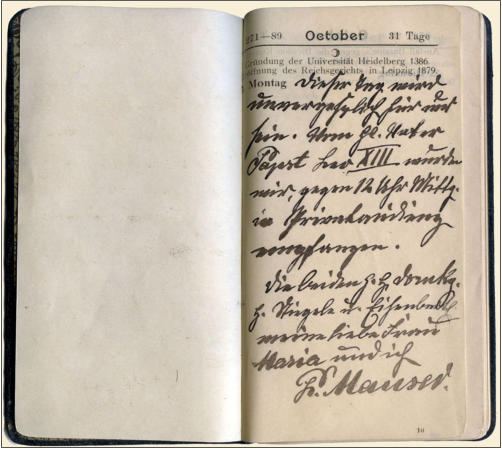 271—89 October 31 Tage
Gründung der Universität Heidelberg 1386.
öffnung des Reichsgerichts in Leipzig 1879.
Montag Dieser Tag wird
unvergeßlich für uns
sein. Vom hl. Vater
Papst Leo XIII wurden
wir, gegen 12 Uhr Mittg.
in Privataudienz
empfangen.
Die beiden H. H. Domkp.
H. Stiegele u.
meine liebe Frau
Maria und ich
Mauser.
10